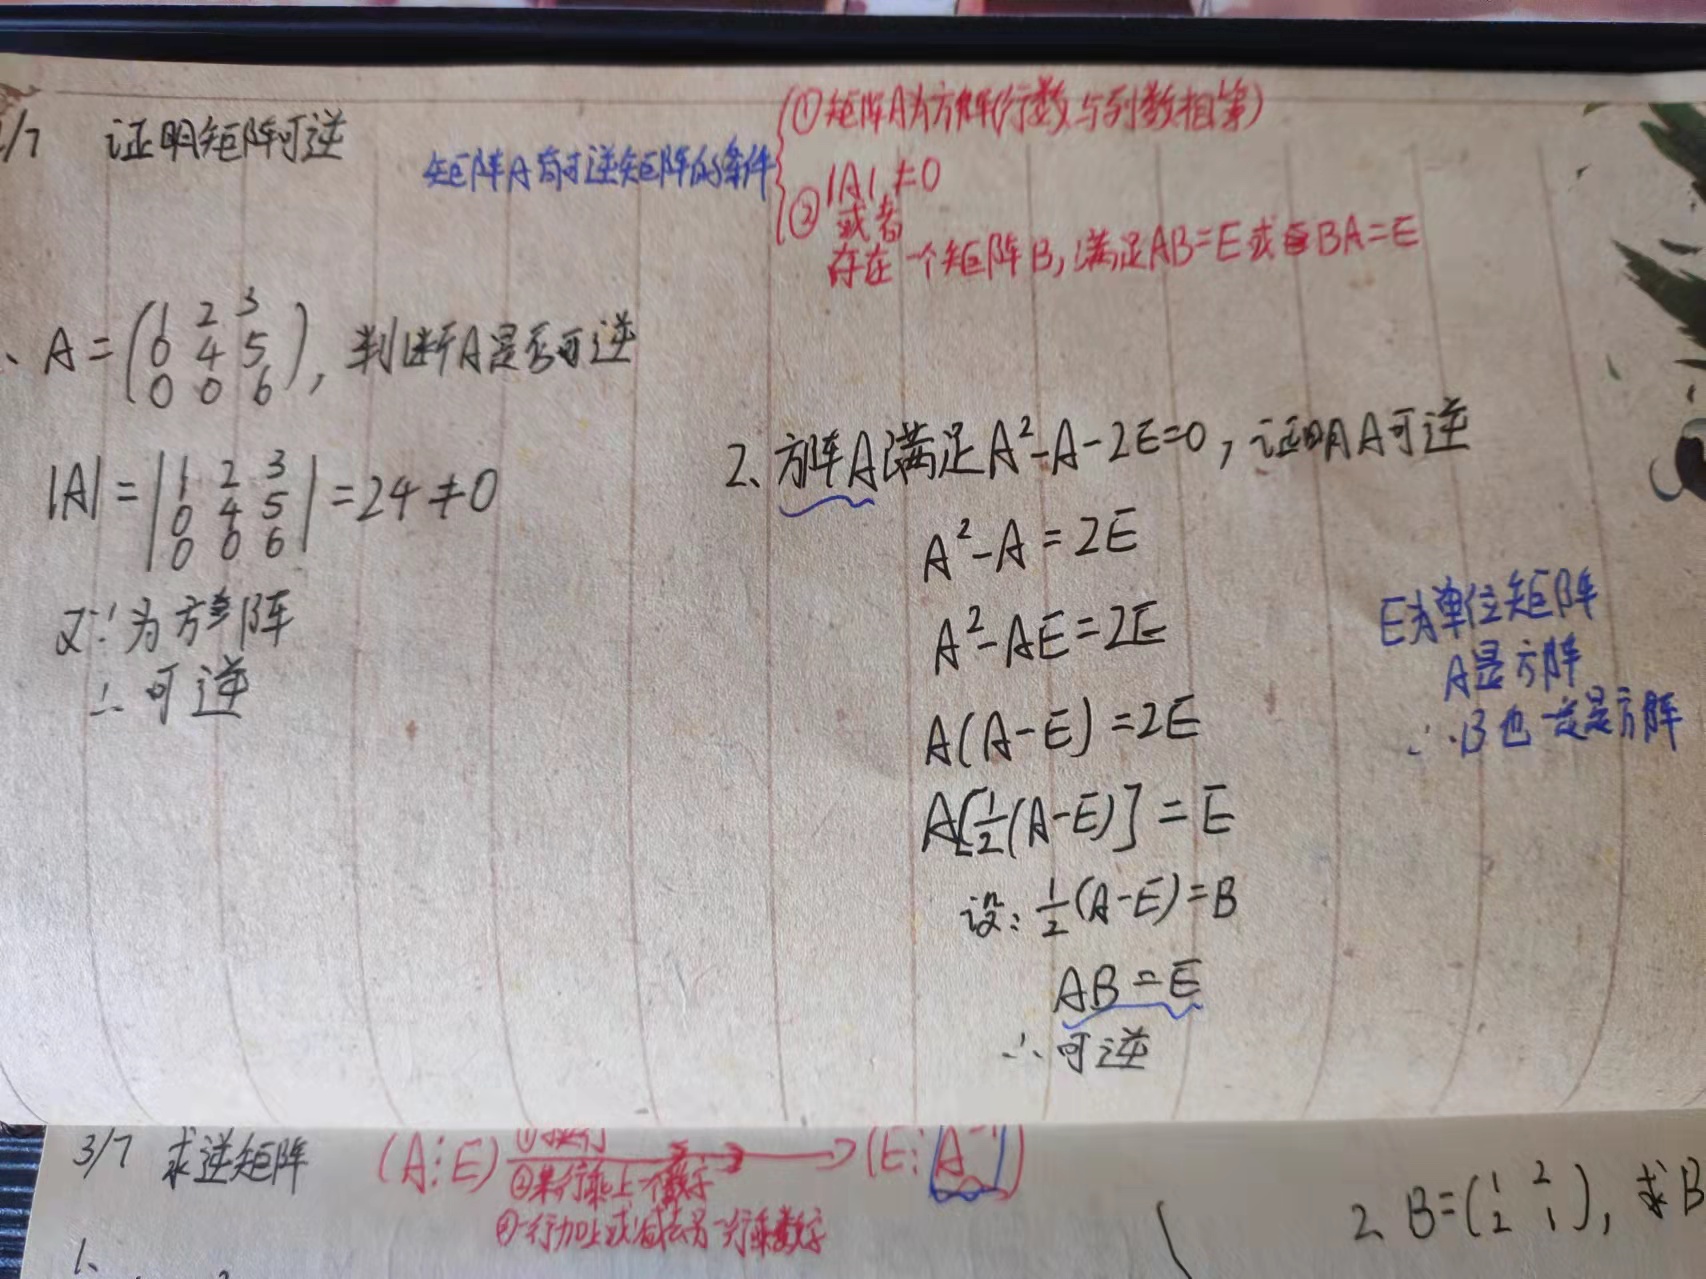 /7 证明矩阵可逆
矩阵A有可逆矩阵的条件
①矩阵A为方阵(行数与列数相等)
②|A|≠0
或者
存在一个矩阵B,满足AB=E或BA=E
、A=(1 2 3
0 4 5
0 0 6),判断A是否可逆
|A|=|1 2 3
0 4 5
0 0 6|=24≠0
又∵为方阵
∴可逆
2、方阵A满足A²-A-2E=0,证明A可逆
A²-A=2E
A²-AE=2E
A(A-E)=2E
A[½(A-E)]=E
设:½(A-E)=B
AB=E
∴可逆
E为单位矩阵
A是方阵
∴B也一定是方阵
3/7 求逆矩阵
(A⋮E)
①换行
②某行乘上一个数字
③一行加上或减去另一行乘数字
(E⋮A⁻¹)
1、
2、B=(1 2
2 1),求B